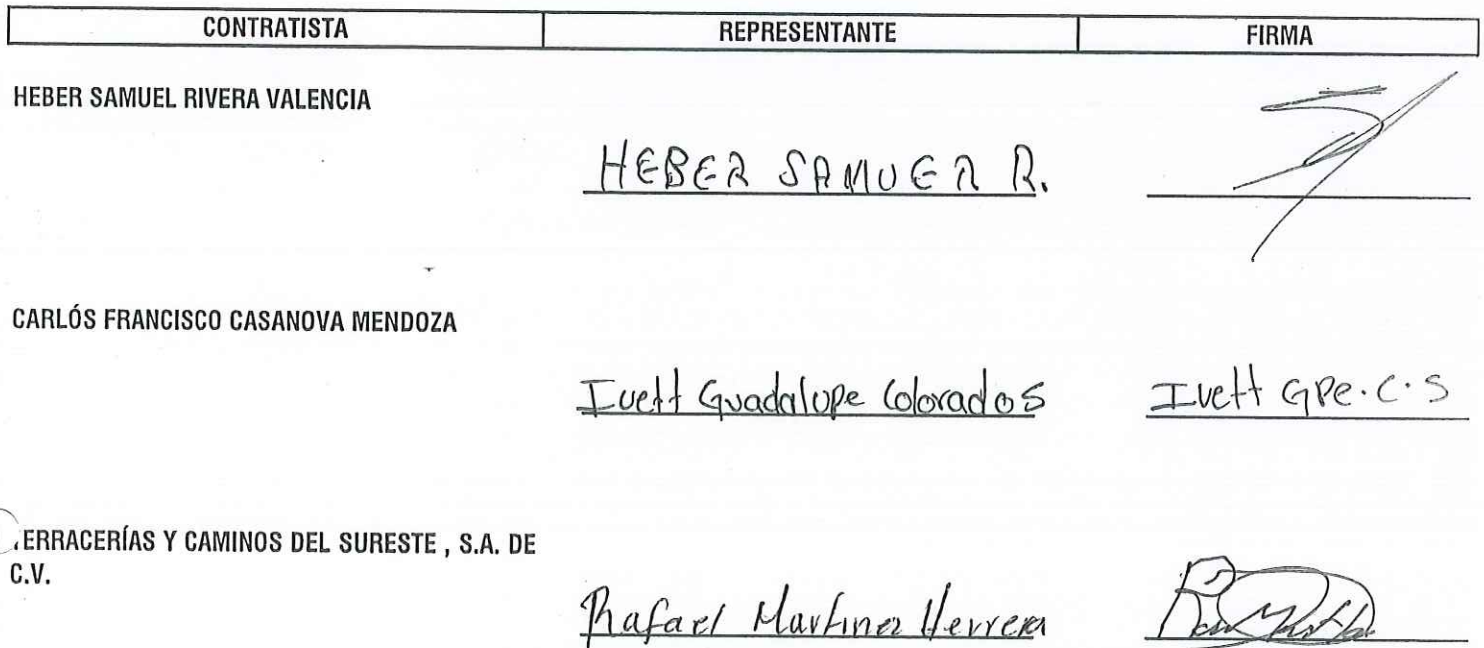 CONTRATISTA REPRESENTANTE FIRMA
HEBER SAMUEL RIVERA VALENCIA
HEBER SAMUER R.
CARLÓS FRANCISCO CASANOVA MENDOZA
Ivett Guadalupe Colorados Ivett GPe.C.S
ERRACERÍAS Y CAMINOS DEL SURESTE , S.A. DE
C.V.
Rafael Martinez Herrera